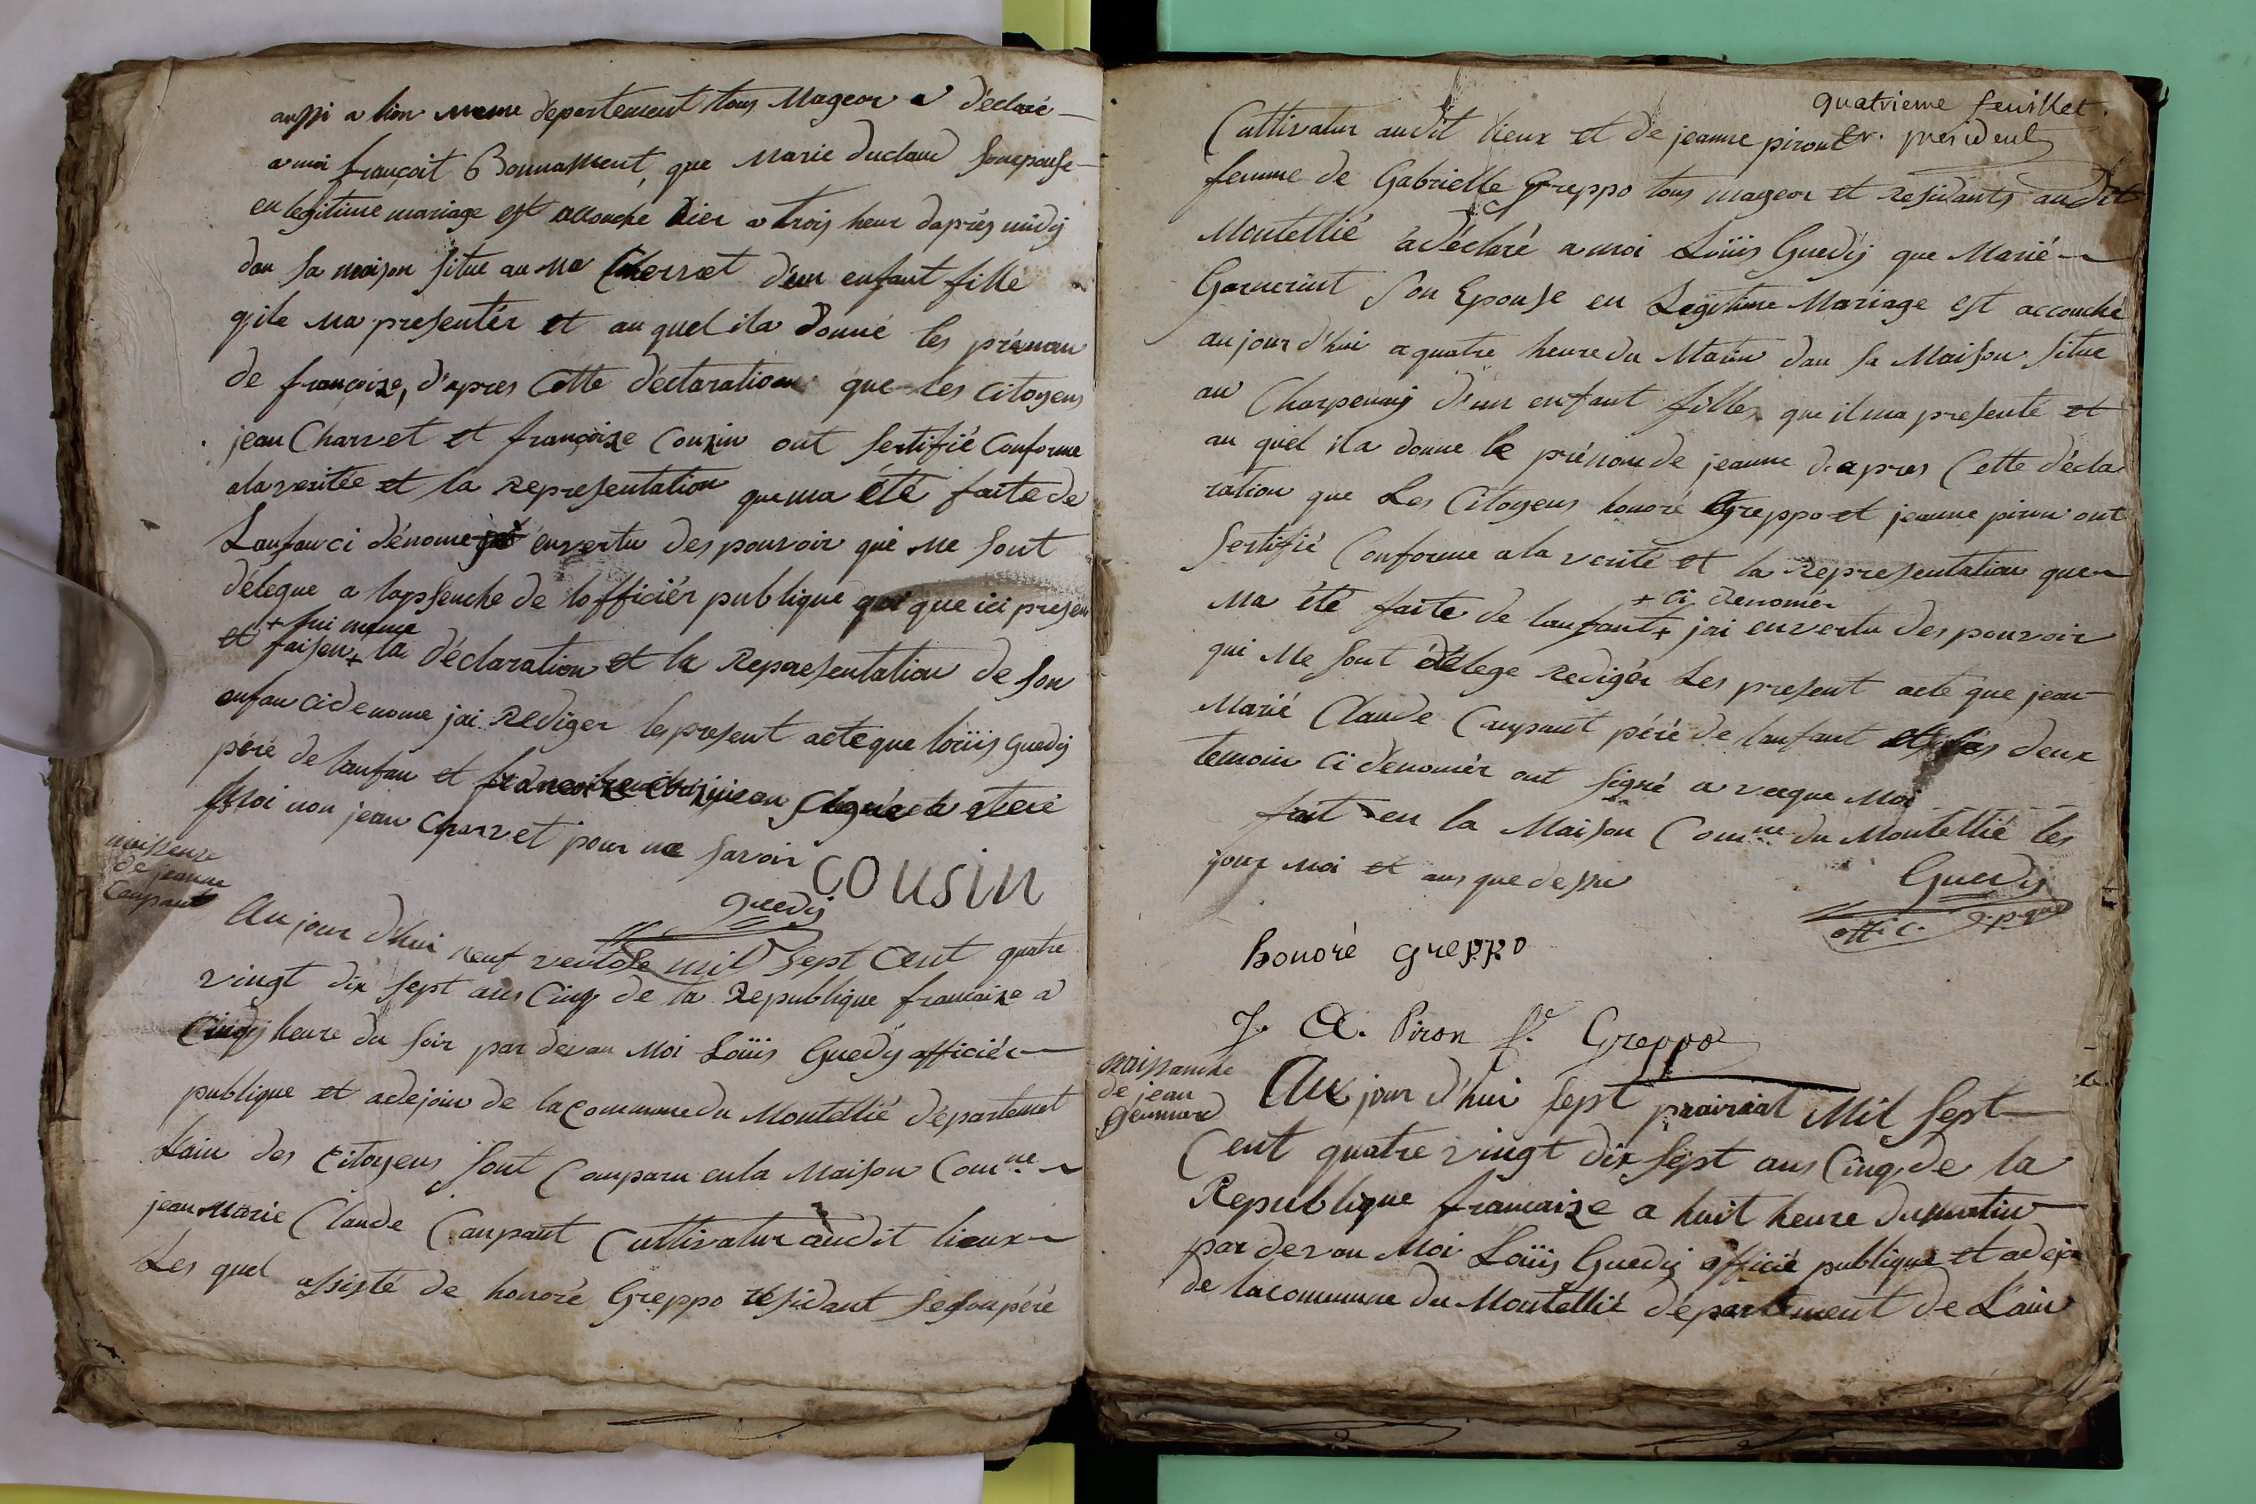 aussi a lion meme departement tous Mageor a déclaré
a moi françoit Bonnassient, que Marie duclaud son epouse
en legitime mariage est accouché hier a trois heur daprés midi
dan sa maison situe au ma Charvet d'un enfant fille
qile ma presentér et au quel ila donné les prénom
de françoize, d'apres Cette déclaration que les citoyens
jean Charvet et françoize Couzin ont sertifié Conforme
ala veritée et la Representation que ma été faite de
Lanfan ci dénomé en vertu des pouvoir qui me sont
délegue a lapsenche de lofficiér publique qoi que ici presen
+ lui meme
et faisen + la déclaration et la Representation de son
enfan ci denome jai Rediger les present acte que loüis Guedy
péré de lanfan et
Moi non jean Charvet pour ne savoir
cousin
Guedy
naissence
de jeanne
Campant
Au jour d'hui neuf ventose mil sept Cent quatre
vingt dix sept ans Cinq de la Republique francaize a
Cinq heure du soir par devan Moi Loüis Guedy officiér
publique et adejoin de la commune du Montellié departemet
Lain des Citoyens sont Comparu en la Maison Comne
jean Marie Claude Campant Cultivatur audit lieux
Les quel assisté de honoré Greppo residant segon péré
quatrieme feuillet.
Gr. president
Cultivatur audit lieux et de jeanne piront
femme de Gabrielle Greppo tous mageor et residants audit
Montellié a déclaré a moi Loüis Guedy que Marié
Garnerint son Epouse en Legitime Mariage est accouché
aujourd'hui a quatre heure du Matin dan sa Maison situe
au Charpenay d'un enfant filles que il ma presenté et
au quel ila donne le prénom de jeanne d. apres Cette décla
ration que Les Citoyens honoré Greppo et jeanne piron ont
sertifié Conforme a la verité et la Representation que
+ ci denomér
ma été faite de lanfant + jai en vertu des pouvoir
qui Me sont délege redigér Les present acte que jean
Marié Claude Campant péré de lanfant et les deux
temoin ci dénomér ont signé a vecque Moi
fait en la Maison Comne du Montellié les
jour moi et ans que dessu
Guedy
offic. p.que
honoré greppo
J. A. Piron f.e Greppo
naissanche
de jean
Au jour d'hui sept prairial Mil sept
Cent quatre vingt dix sept ans Cinq de la
Republique francaize a huit heure du matin
par devan Moi Loüis Guedy officié publique et adejoin
de la commune du Montellié département de Lain